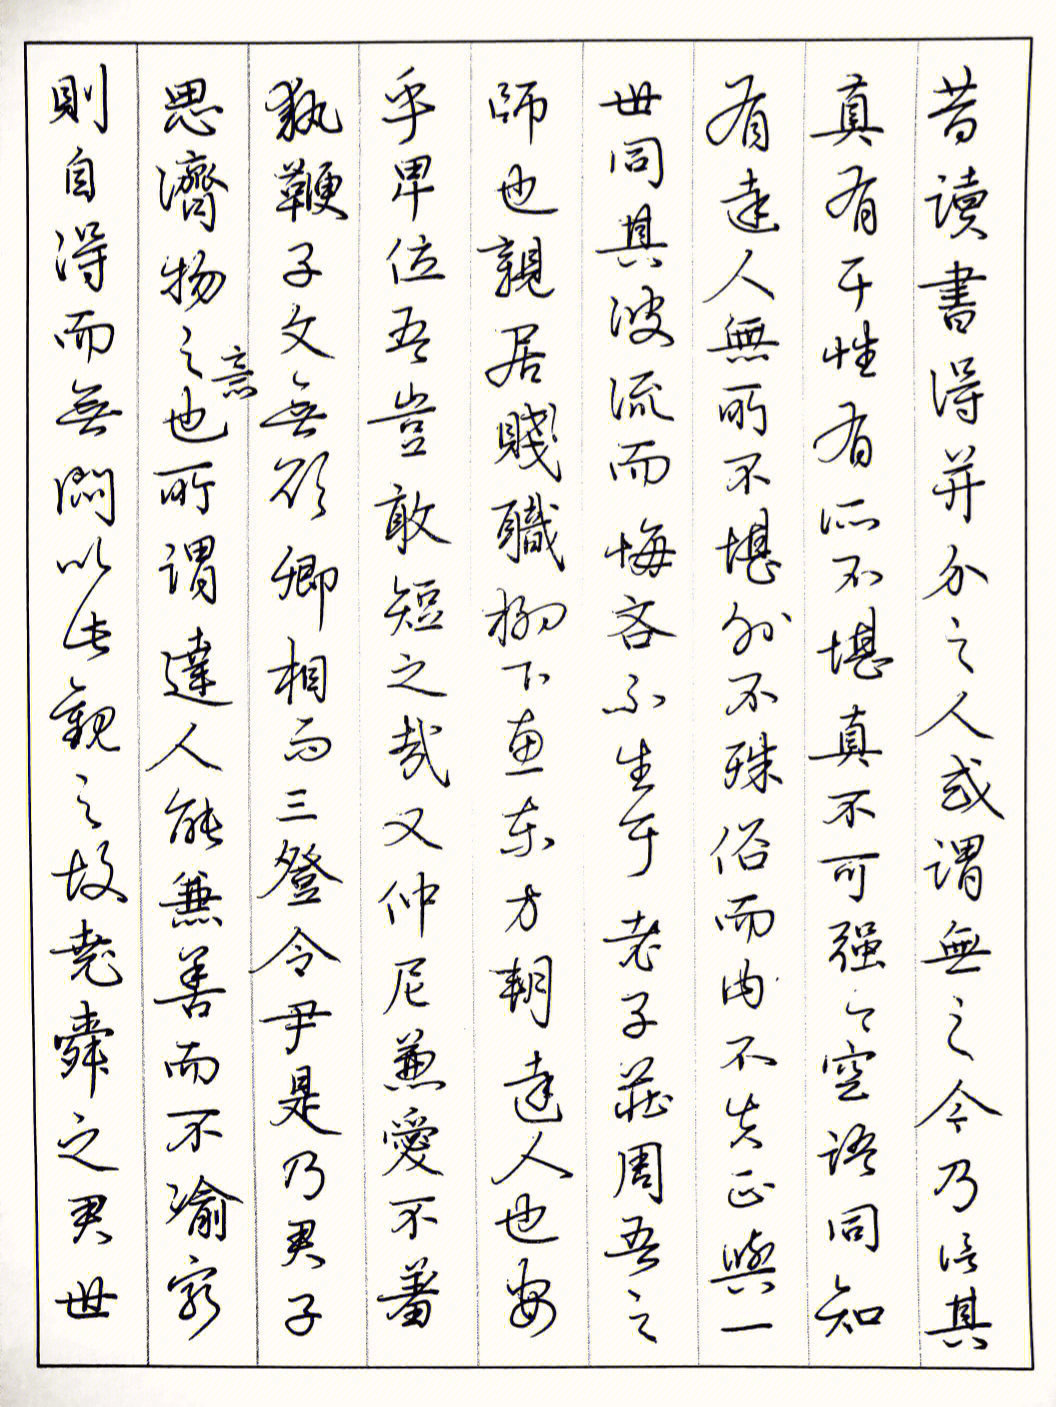 昔讀書得并介之人或謂無之今乃信其
真有耳性有所不堪真不可强今空語同知
有達人無所不堪外不殊俗而内不失正與一
世同其波流而悔吝不生耳老子莊周吾之
師也親居賤職柳下惠東方朔達人也安
乎卑位吾豈敢短之哉又仲尼兼愛不羞
執鞭子文無欲卿相而三登令尹是乃君子
思濟物之意也所謂達人能兼善而不渝窮
則自得而無悶以此觀之故堯舜之君世